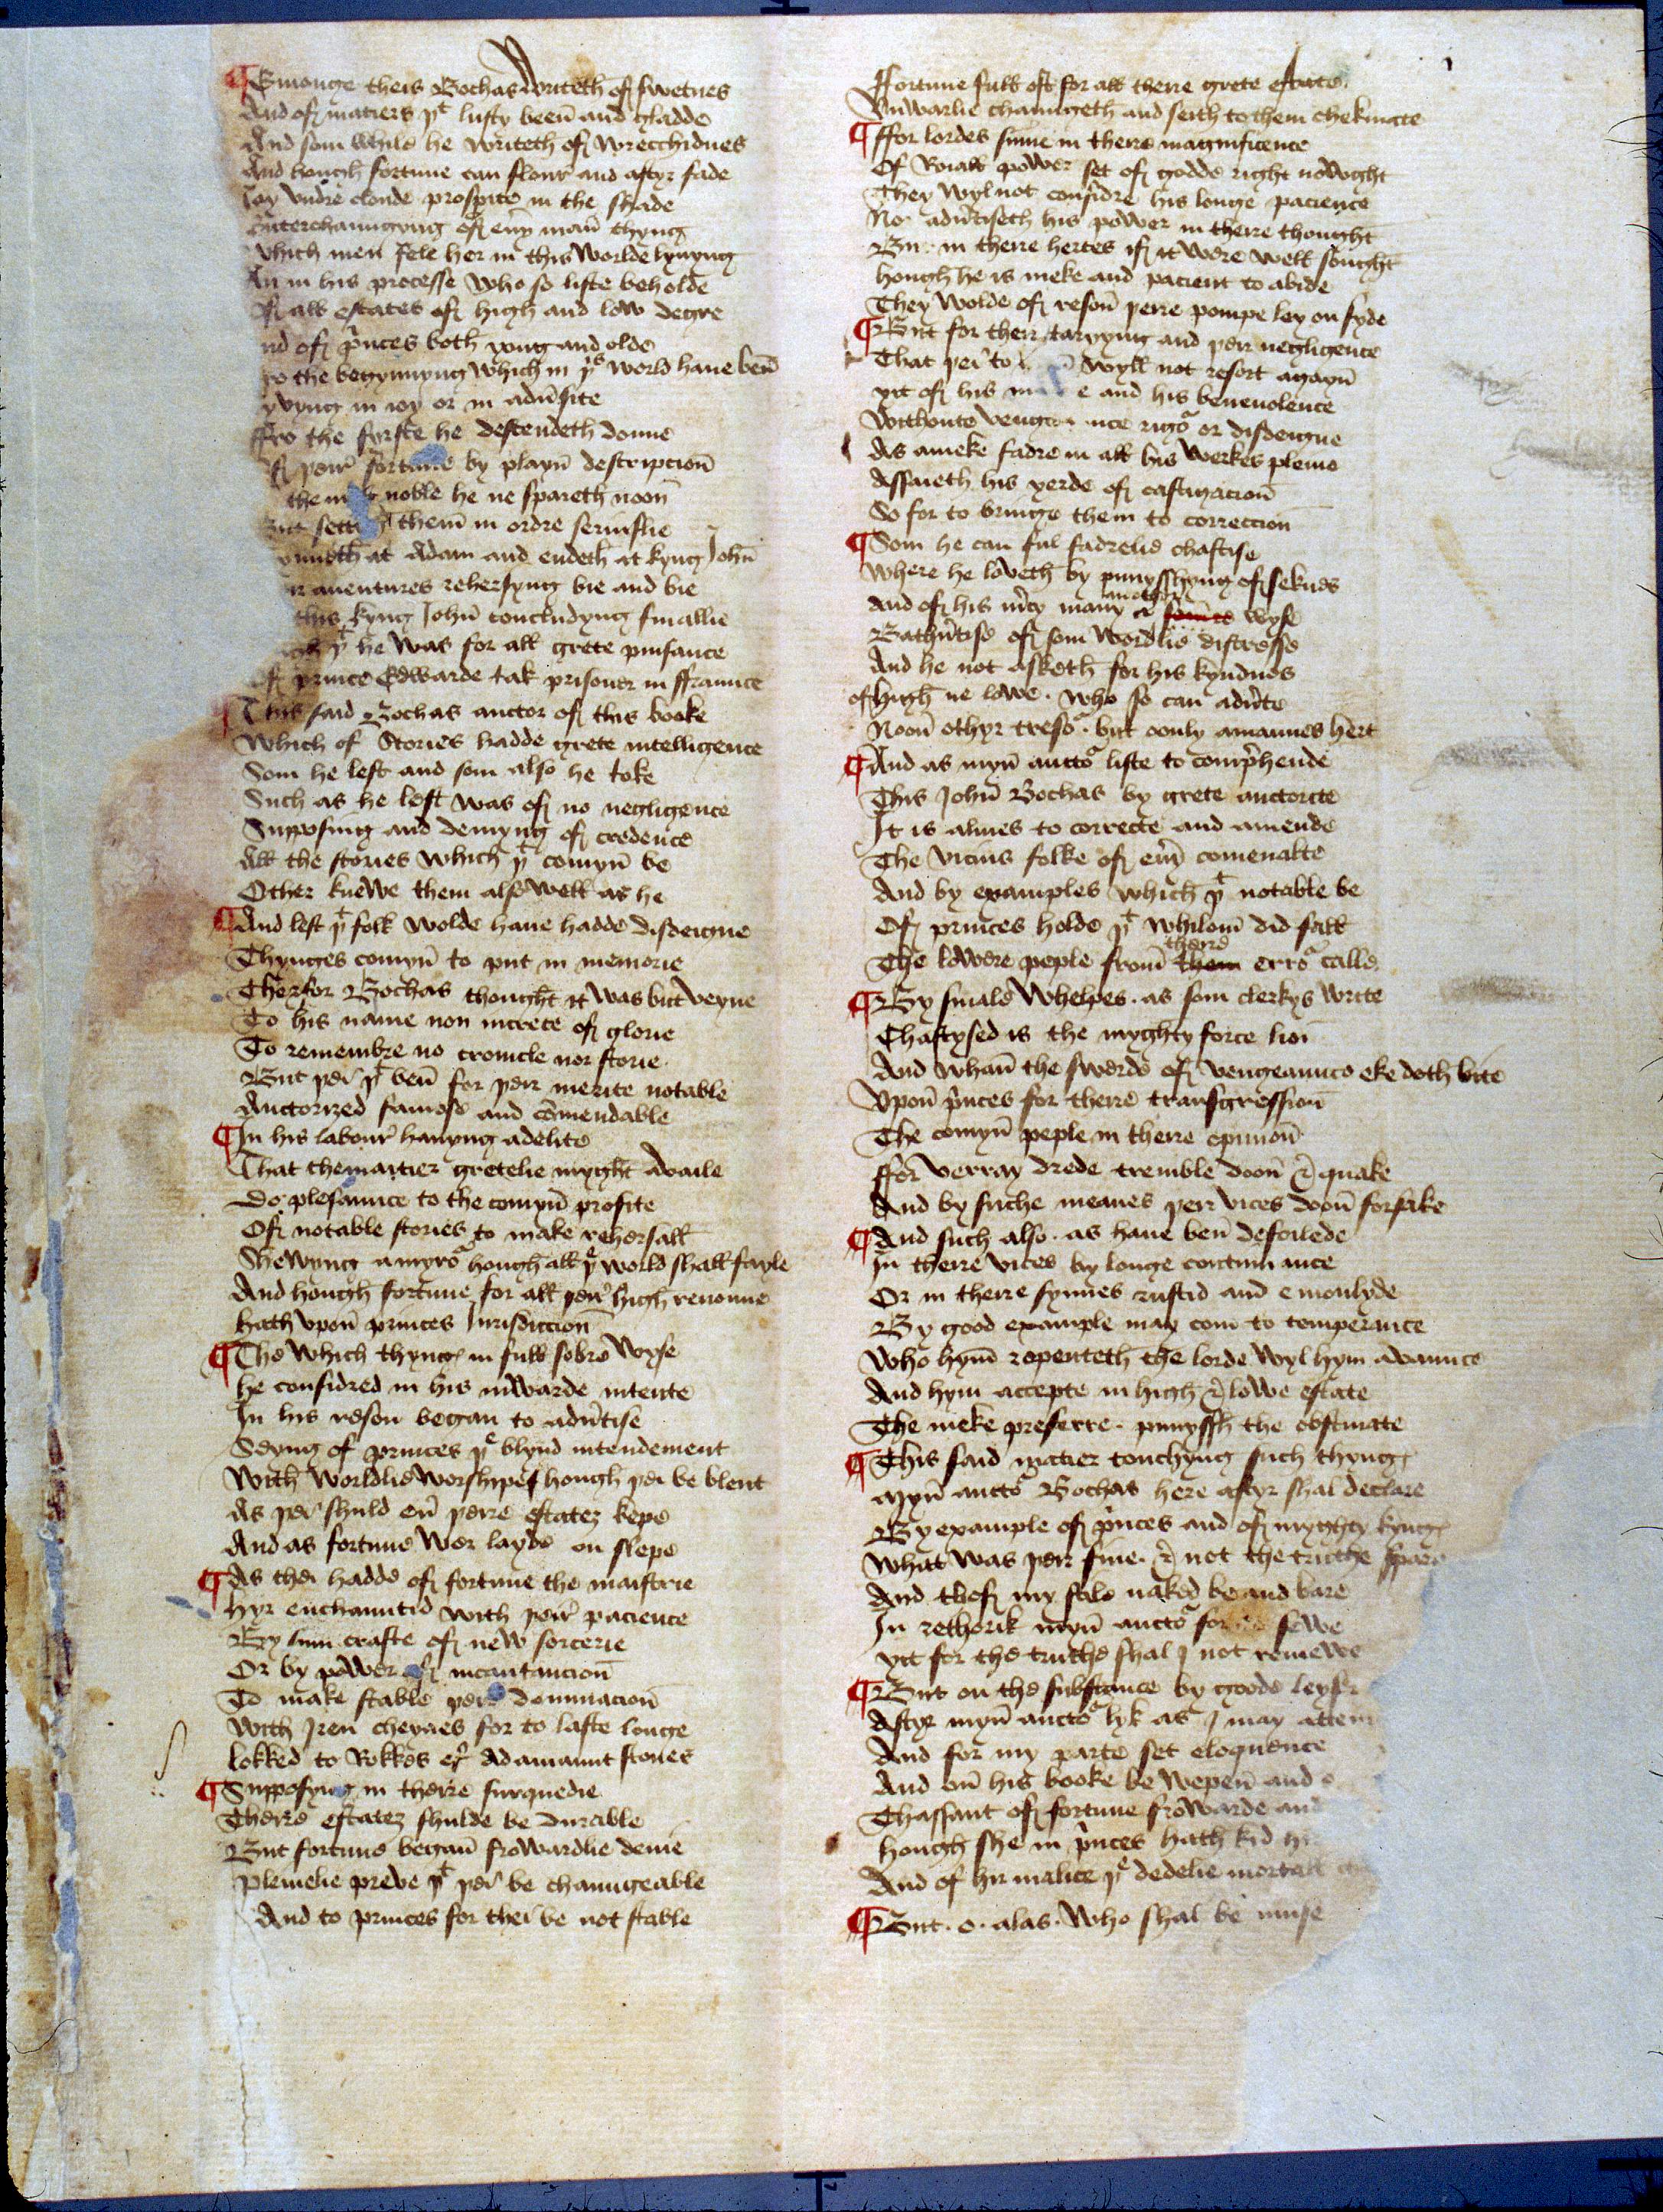 ¶ Emonge theis Bochas writeth of swetnes
And of matiers þt lusty been̄ and gladde
And som while he writeth of wrecchidnes
And hough fortune can flour and aftyr fade
Ioy vndre cloude prospite in the shade
Enterchaungyng of eny man̄ thyng
Which men fele her in this worlde lyuyng
in his processe who so liste beholde
Of all estates of high and low degre
nd of p̄nces both yong and olde
ro the begynnyng which in þs world haue ben̄
yvyng in ioy or in adūsite
ffro the fyrste he descendeth doune
Of þeir fortune by playn̄ descripcion̄
the noble he ne spareth noon̄
But settyng them̄ in ordre seriuslie
nneth at Adam and endeth at kyng John̄
ir auentures rehersyng bie and bie
this kyng John̄ concludyng finallie
þt he was for all grete puisance
Of prince Edwarde tak prisoner in ffraunce
¶ This said Bochas auctor of this booke
Which of Stories hadde grete intelligence
Som he left and som also he toke
Such as he left was of no negligence
Supposing and demyng of credence
All the stories which þt comyn̄ be
Other knewe them also well as he
¶ And lest þt folk wolde haue hadde disdeigne
Thynges comyn̄ to put in memorie
Therfor Bochas thought it was but veyne
To his name non increce of glorie
To remembre no cronicle nor storie
But þei þt ben̄ for þeir merite notable
Auctorized famose and cōmendable
¶ In his labour hauyng a delite
That the matier gretelie myght Availe
Do plesaunce to the comyn̄ profite
Of notable stories to make rehersall
Shewyng a myrọr hough all þe world shall fayle
And hough fortune for all þeir high renoune
hath vpon̄ princes Iurisdiccion̄
¶ The which thyngꝭ in full sobre wyse
he considred in his inwarde intente
In his reson began to adūtise
Seyng of princes þe blynd intendement
With worldlie worshipes hough þei be blent
As þei shuld eū þerre estatez kepe
And as fortune wer layde on slepe
¶ As thei hadde of fortune the maistrie
hyr enchauntid with þeir pacience
By sum crafte of new sorcerie
Or by power of incantancion̄
To make stable þeir dominacion̄
With Iren cheynes for to laste longe
lokked to Rokkes of Adamaunt stones
¶ Supposyng in therre surquedie
Therre estatez shulde be durable
But fortune began̄ frowardlie denie
Pleinelie preve þt þei be chaungeable
And to princes for thei be not stable
ffortune full oft for all there grete estate
Vnwarlie chaungeth and seith to them chekmate
¶ ffor lordes sume in there magnificence
Of Roiall power set of godde right nowght
They wyl not considre his longe pacience
No adūtiseth his power in therre thought
But in therre hertes if it were well sought
hough he is meke and pacient to abide
They wolde of reson̄ þerre pompe ley on syde
¶ But for therr taryyng and þeir negligence
That þei to wyll not resort agayn̄
yit of his e and his beneuolence
Withoute vengeance rigor or disdeigne
As a meke fadre in all his werkes pleine
Assaieth his yerde of castigacion̄
So for to bringe them to correccion̄
¶ Som he can ful fadrelie chastise
Where he loveth by punysshyng of seknes
And of his m̄cy many a another wyse
Bathūtise of som wordlie distresse
And he not asketh for his kyndnes
of high ne lowe . who so can adūte
Noon̄ othyr tresor . but oonly a mannes hert
¶ And as myn̄ auctor liste to comp̄hende
This John̄ Bochas by grete auctorite
It is almes to correcte and amende
The vicius folke of eūy comenalte
And by examples which þt notable be
Of princes holde þt whilom̄ did fall
The lowere peple from̄ there error calle
¶ By smale whelpes . as som clerkys write
Chastysed is the myghty force lion
And whan̄ the swerde of vengeaunce eke doth bite
Vpon̄ p̄nces for therre transgression̄
The comyn̄ peple in therre opinion̄
ffor verray drede tremble doon̄ & quake
And by suche meanes þeir vices doon̄ forsake
¶ And such also . as haue ben̄ defoilede
In therre vices by longe continuance
Or in therre synnes rustid and emoulyde
By good example may com to temperance
Who hym̄ repenteth the lorde wyl hym avaunce
And hym accepte in high & lowe estate
The meke preferre . punyssh the obstinate
¶ This said matier touchyng such thyngꝭ
Myn̄ auctor Bochas here aftyr shal declare
By example of p̄nces and of myghty kyngꝭ
What was þeir fine . & not the truthe spare
And thof my stile naked be and bare
In rethorik myn̄ auctor for sewe
yit for the truthe shal I not remewe
¶ But on the substance by goode leyser
Aftyr myn̄ auctor lyk as I may
And for my parte set eloquence
And on̄ his booke be wepen̄ and
Thassaut of fortune frowarde and
hough she in p̄nces hath kid
And of hir malice þe dedelie mortall
¶ But . o . alas . Who shal be muse